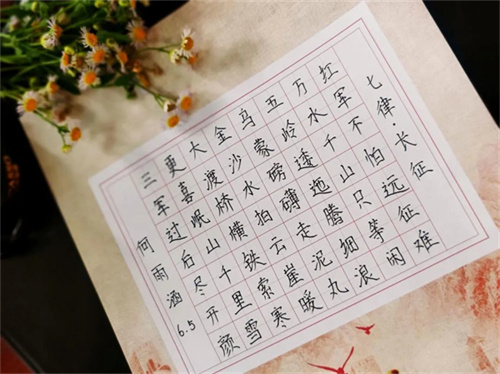 七律·长征
红军不怕远征难
万水千山只等闲
五岭逶迤腾细浪
乌蒙磅礴走泥丸
金沙水拍云崖暖
大渡桥横铁索寒
更喜岷山千里雪
三军过后尽开颜
何雨涵 6.5